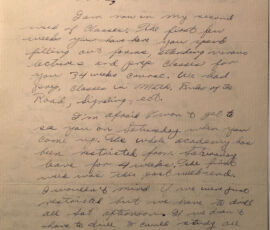 I am now in my second
week of classes. The first few
weeks you have here you spend
filling out forms, attending various
lectures and prep classes for
your 34 weeks course. We had
prep. classes in Math, Rules of the
Road, Signaling, etc.
I'm afraid I won't get to
see you on Saturday when you
come up. The whole academy has
been restricted from Saturday
leave for 4 weeks. The first
week was this past weekend.
I wouldn't mind if we were just
restricted but we have to drill
all Sat afternoon. If we didn't
have to drill I could study all